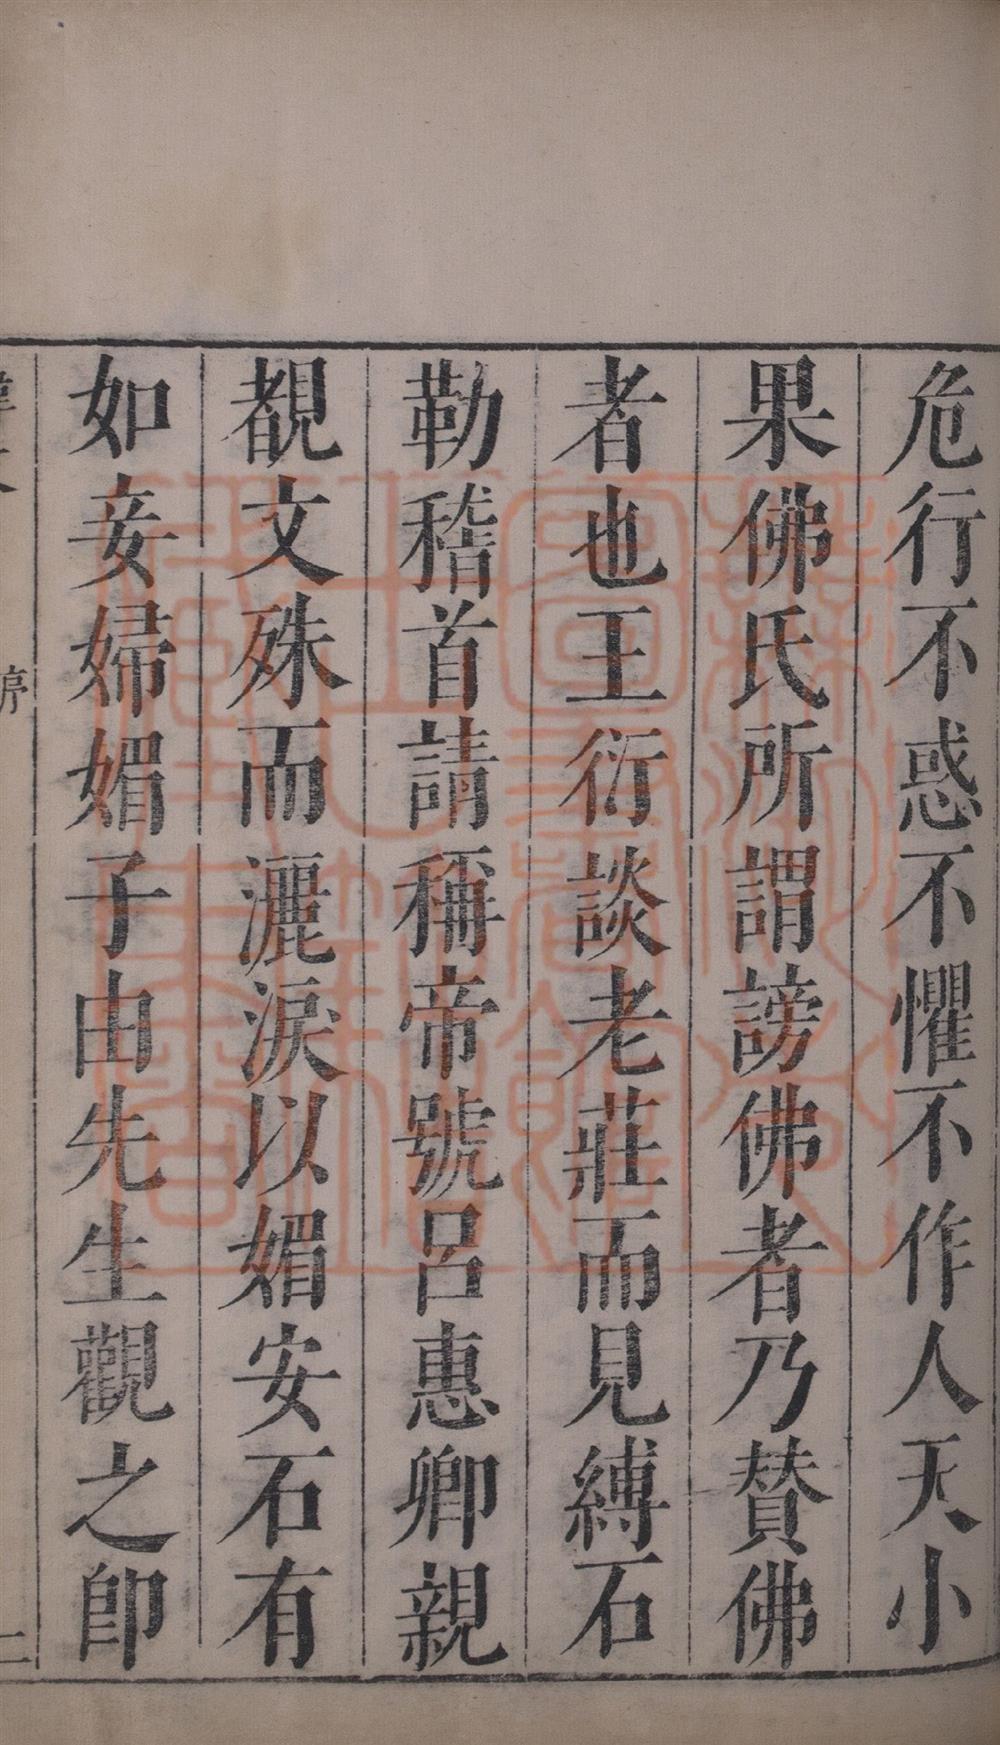 危行不惑不懼不作人天小
果佛氏所謂謗佛者乃賛佛
者也王衍談老莊而見縛石
勒稽首請稱帝號呂惠卿親
覩文殊而灑淚以媚安石有
如妾婦媚子由先生觀之即
序